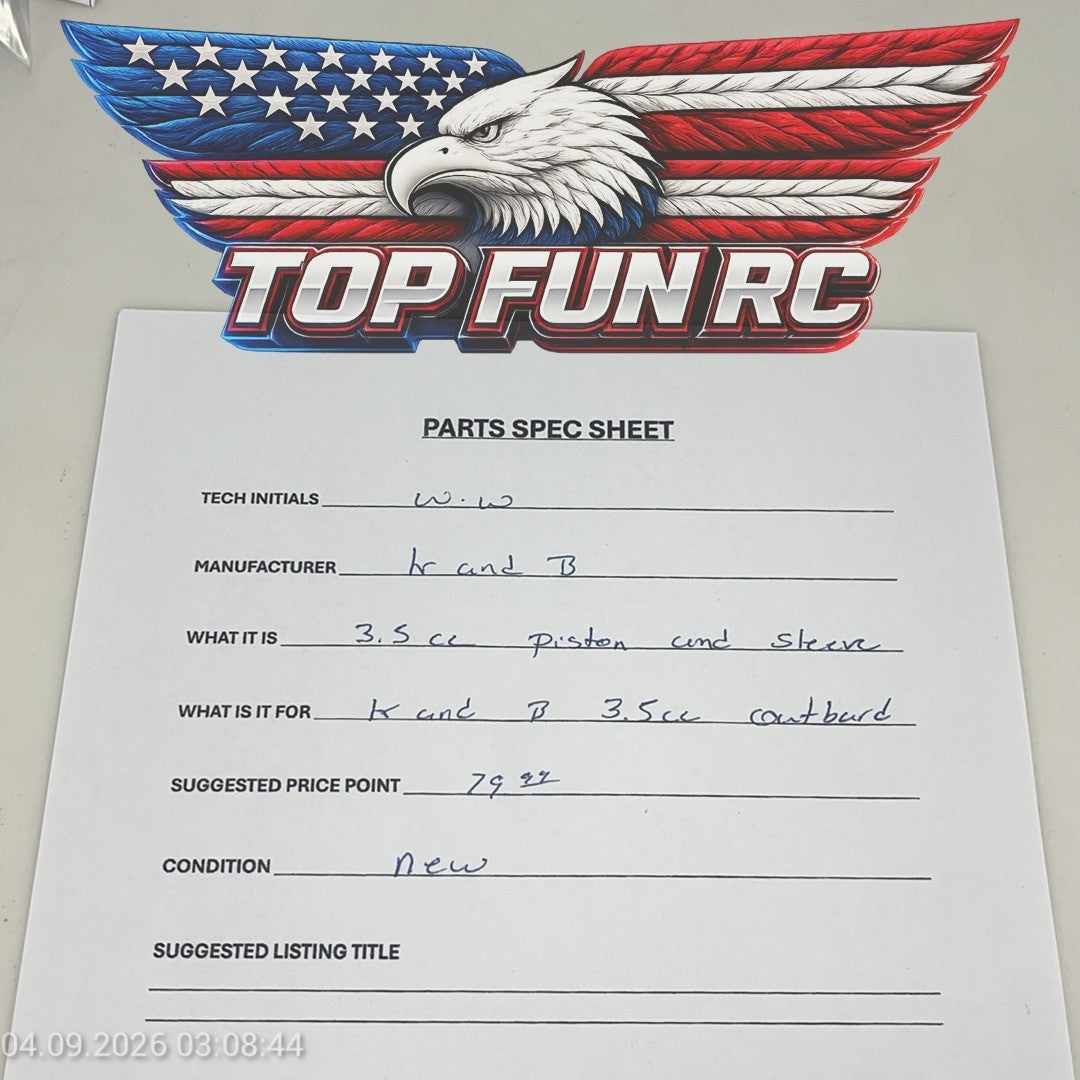 TOP FUN RC
PARTS SPEC SHEET
TECH INITIALS w.w
MANUFACTURER K and B
WHAT IT IS 3.5 cc piston and sleeve
WHAT IS IT FOR K and B 3.5cc outbard
SUGGESTED PRICE POINT 79 99
CONDITION new
SUGGESTED LISTING TITLE
04.09.2026 03:08:44